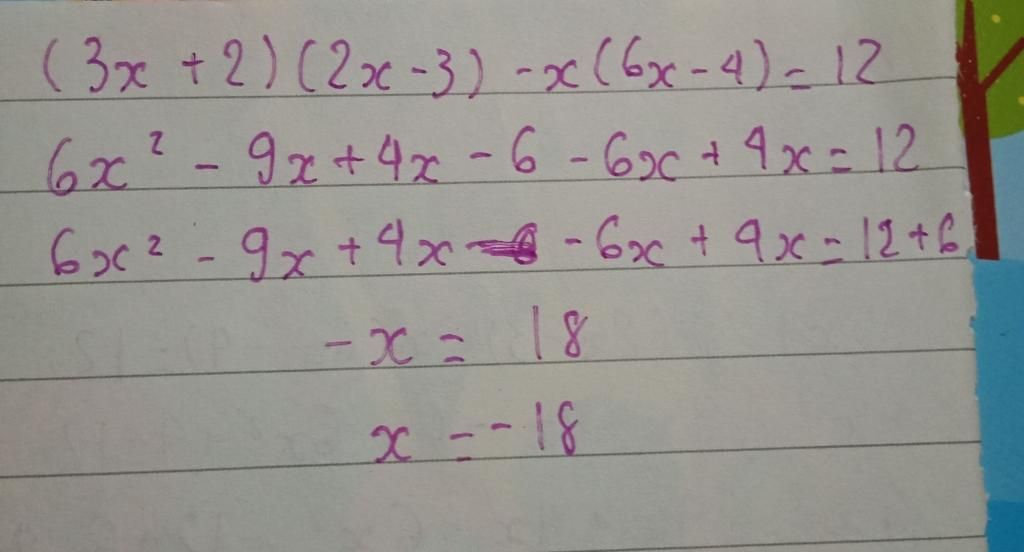 (3x + 2)(2x - 3) - x(6x - 4) = 12
6x² - 9x + 4x - 6 - 6x + 4x = 12
6x² - 9x + 4x - 6x + 4x = 12 + 6
- x = 18
x = - 18